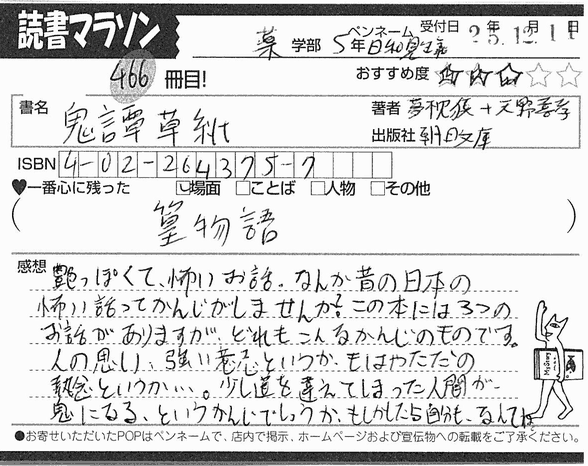 読書マラソン
薬 学部 5年 ペンネーム 日和見 受付日 25年12月11日
466 冊目!
おすすめ度 ★★★☆☆
書名 鬼譚草紙
著者 夢枕獏+天野喜孝
出版社 朝日文庫
ISBN 4-02-264375-7
♥一番心に残った ☑場面 □ことば □人物 □その他
( 篁物語 )
感想 艶っぽくて、怖いお話。なんか昔の日本の
怖い話ってかんじがしませんか?この本には3つの
お話がありますが、どれもこんなかんじのものです。
人の思い、強い意志というか、もはやただの
執念というか…。少し道を違えてしまった人間が
鬼になる、というかんじでしょうか、もしかしたら自分も、なんてね…
●お寄せいただいたPOPはペンネームで、店内で掲示、ホームページおよび宣伝物への転載をご了承ください。